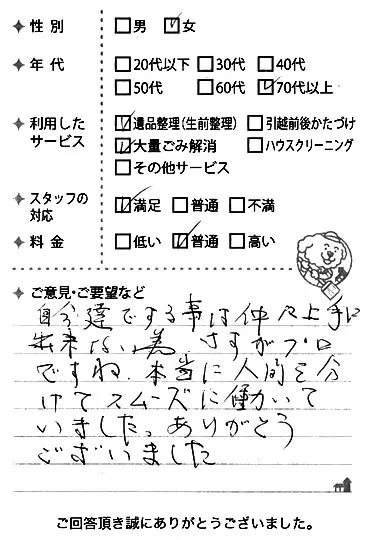 ✦ 性別 □男 ☑女
✦ 年代 □20代以下 □30代 □40代
□50代 □60代 ☑70代以上
✦ 利用したサービス ☑遺品整理(生前整理) □引越前後かたづけ
☑大量ごみ解消 □ハウスクリーニング
□その他サービス
✦ スタッフの対応 ☑満足 □普通 □不満
✦ 料金 □低い ☑普通 □高い
✦ ご意見・ご要望など
自分達でする事は仲々上手に
出来ない為、さすがプロ
ですね。本当に人的を分
けてスムーズに働いて
いました。ありがとう
ございました
ご回答頂き誠にありがとうございました。